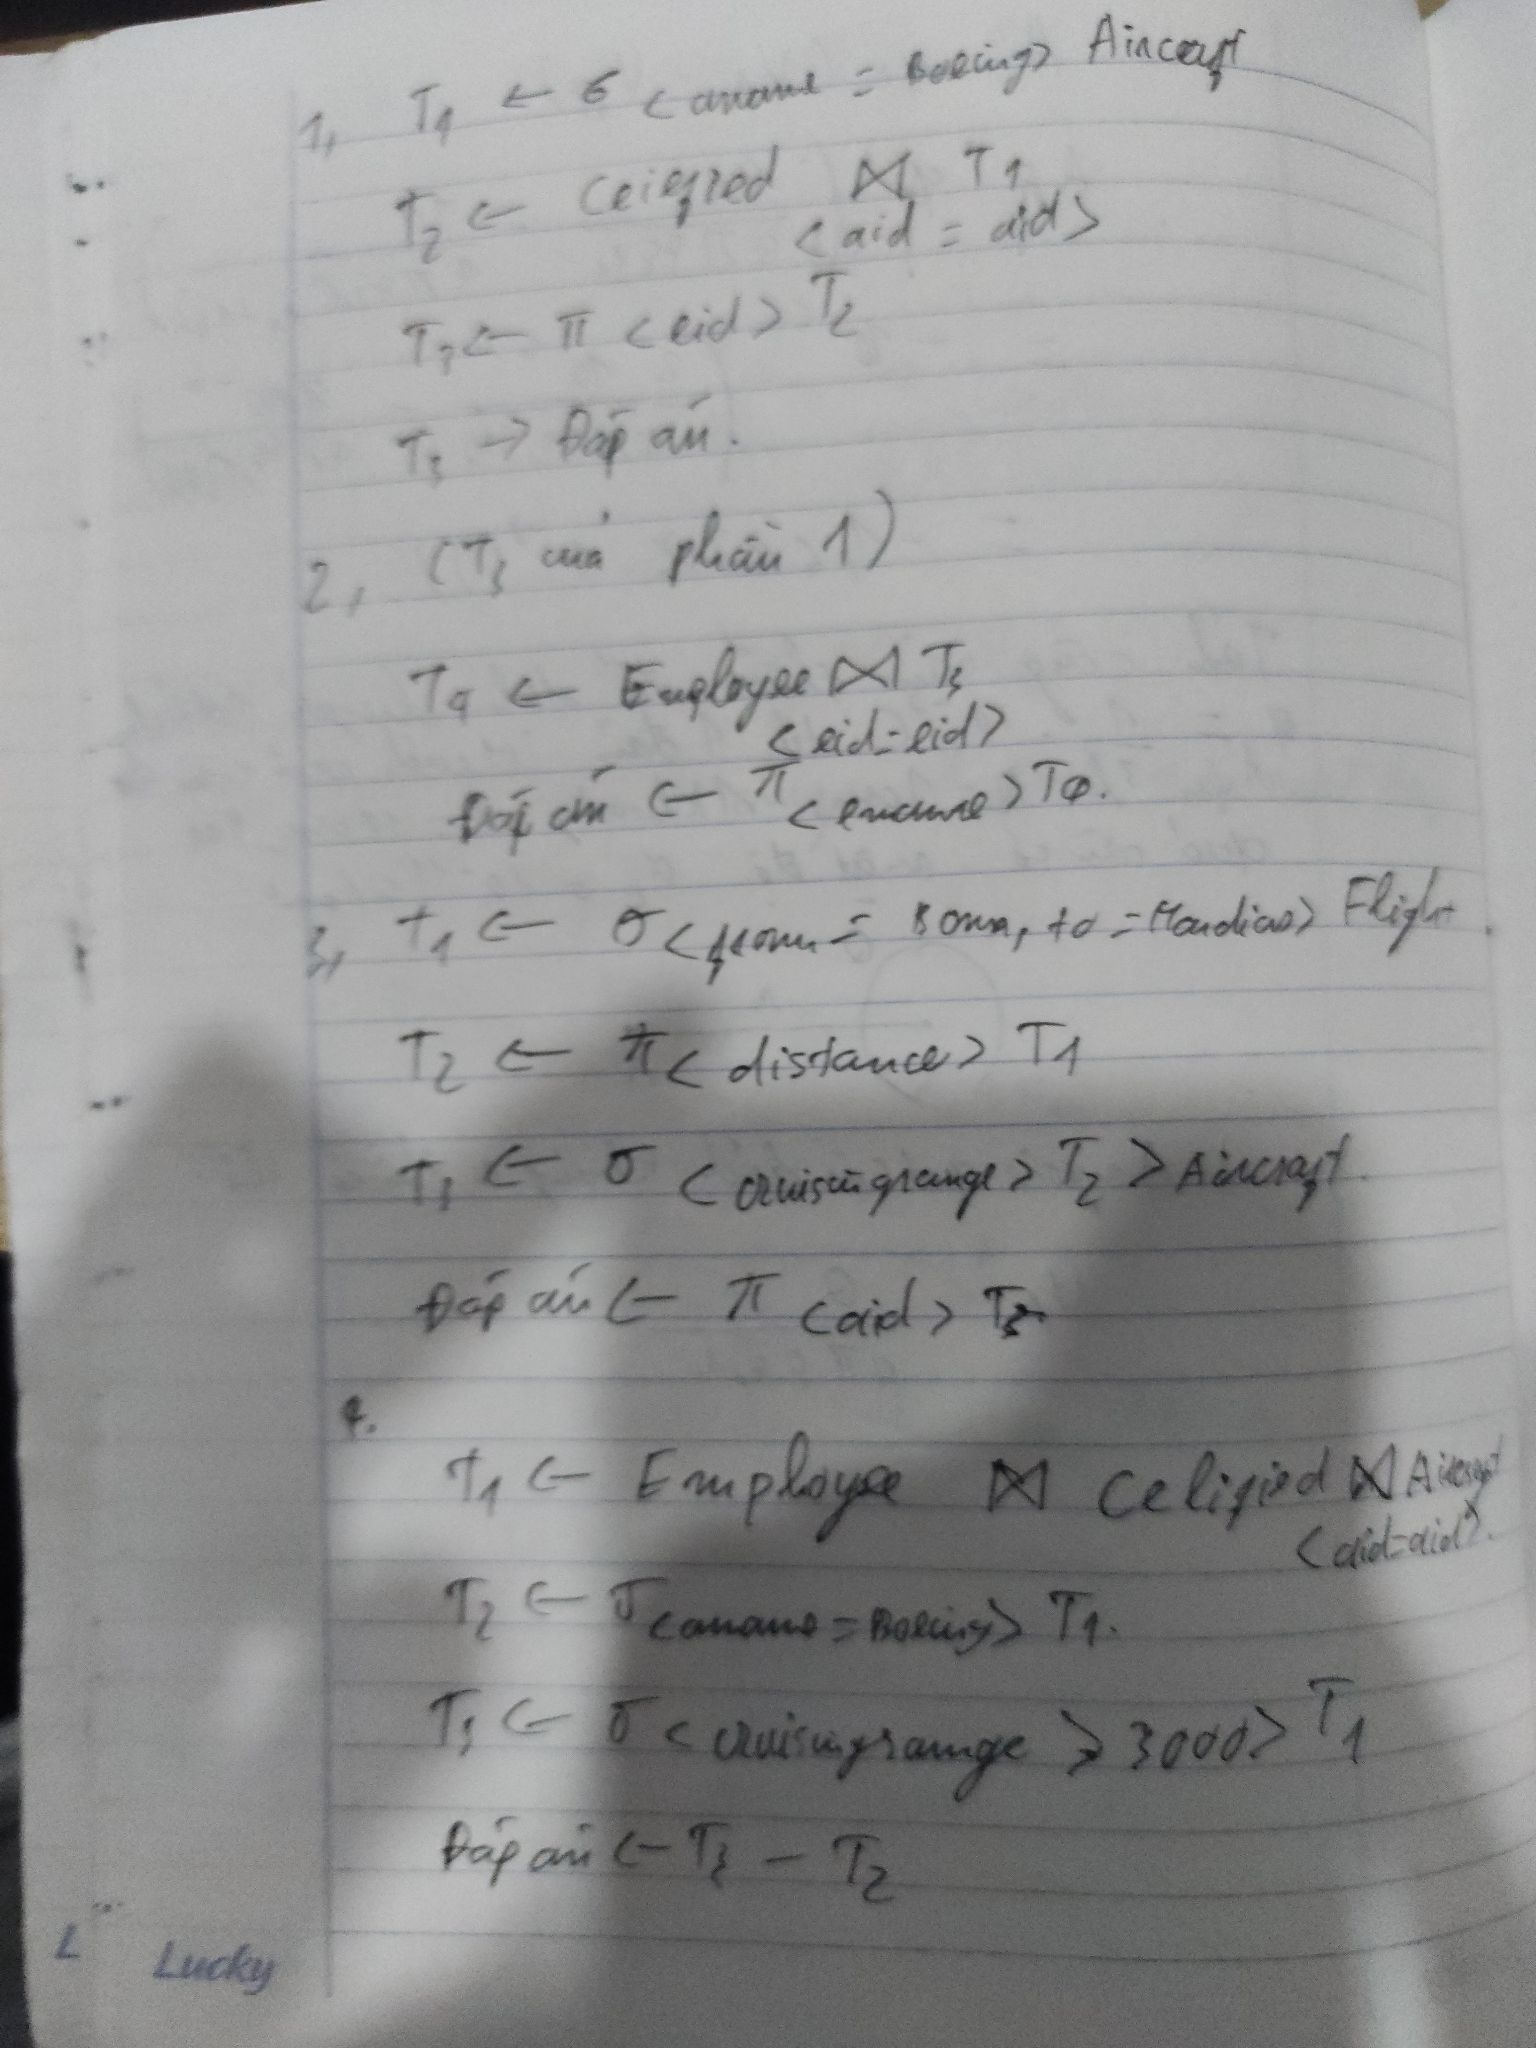 1, T1 ← σ <aname = Boeing> Aircraft
T2 ← Ceified ⋈ T1
<aid = aid>
T3 ← π <eid> T2
T3 → Đáp án.
2, (T3 của phần 1)
T4 ← Employee ⋈ T3
<eid=eid>
Đáp án ← π <ename> T4.
3, T1 ← σ <from = Bonn, to = Mardias> Flight.
T2 ← π < distance> T1
T3 ← σ < cruisingrange > T2 > Aircraft.
Đáp án ← π <aid> T3.
4.
T1 ← Employee ⋈ Celified ⋈ Aircraft
<aid=aid>.
T2 ← σ <aname = Boeing> T1.
T3 ← σ < cruisingrange ⩾ 3000> T1
Đáp án ← T3 - T2
L Lucky